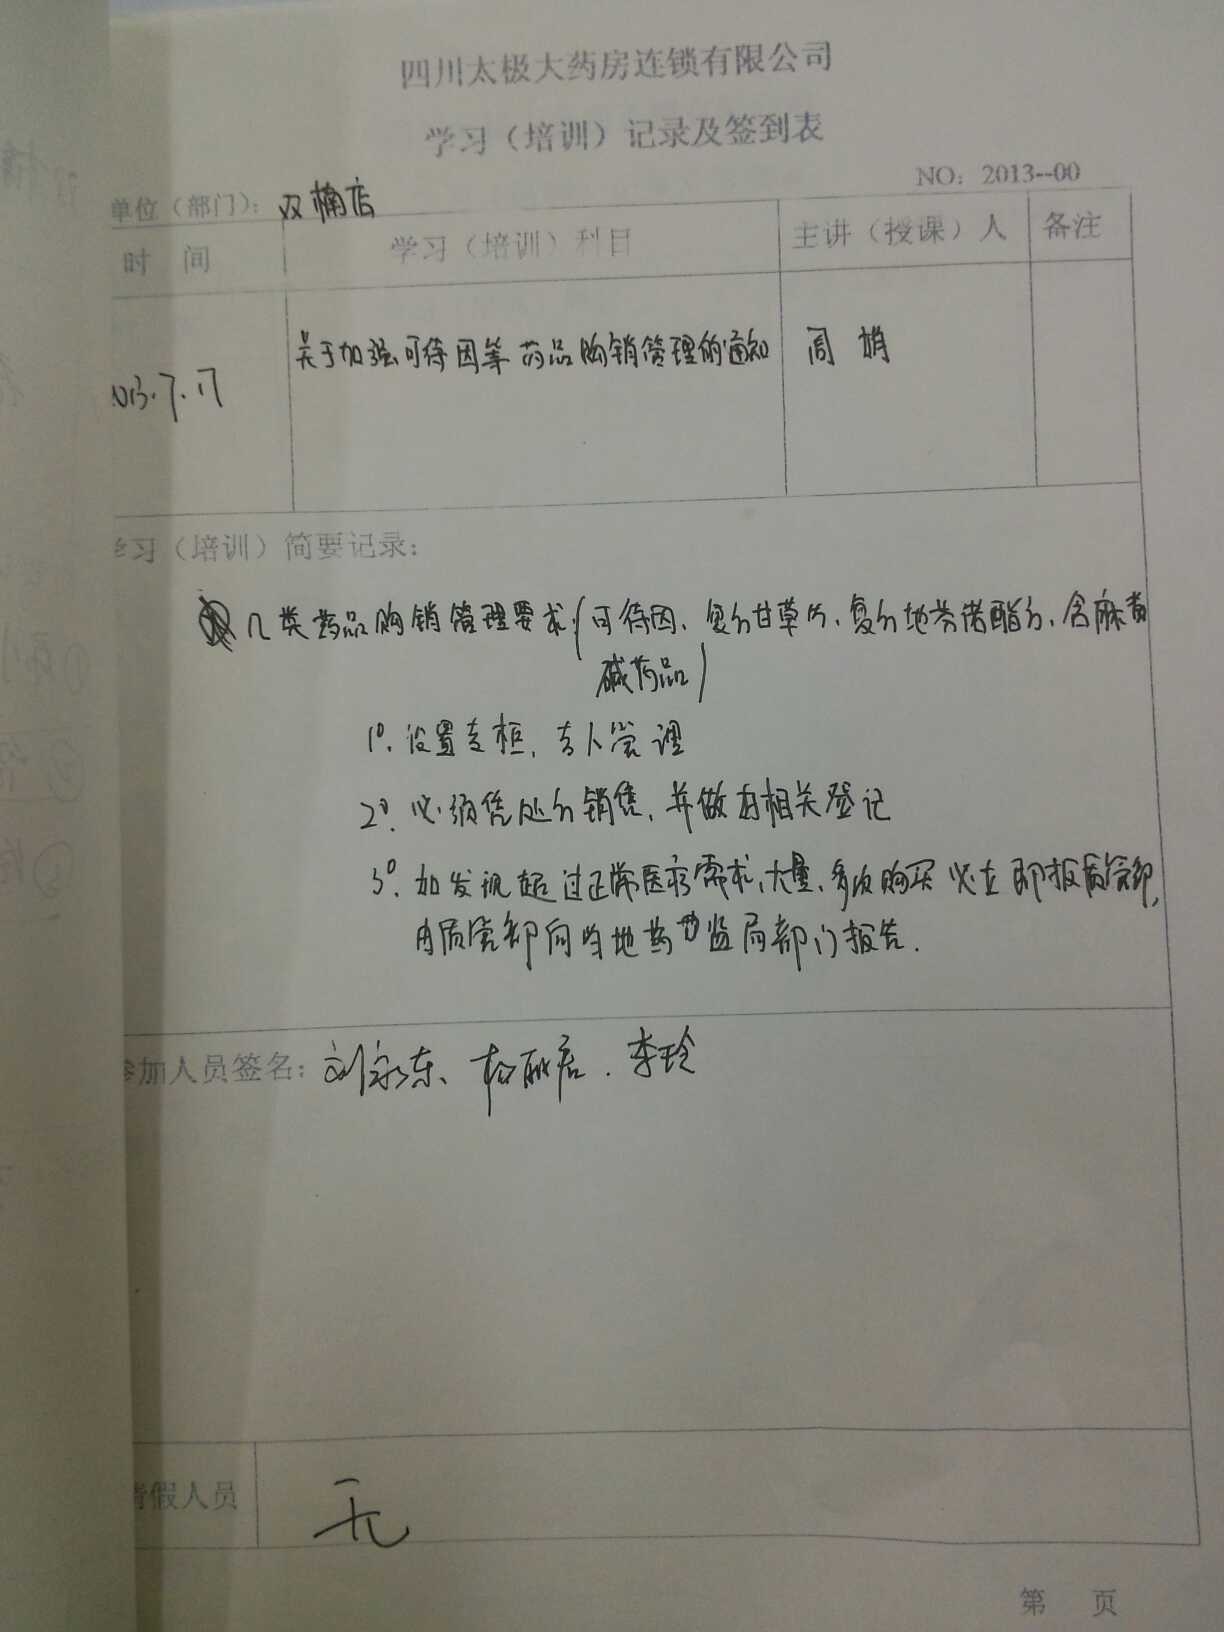 四川太极大药房连锁有限公司
学习（培训）记录及签到表
NO：2013--00
单位（部门）：双楠店
时 间 学习（培训）科目 主讲（授课）人 备注
013.7.17 关于加强可待因等药品购销管理的通知 周娟
学习（培训）简要记录：
几类药品购销管理要求（可待因、复方甘草片、复方地芬诺酯片、含麻黄
碱药品）
1º. 设置专柜，专人管理
2º. 必须凭处方销售，并做有相关登记
3º. 如发现超过正常医疗需求，大量、多次购买必立即报质管部，
由质管部向当地药监局部门报告.
参加人员签名：刘永东、 . 李玲
请假人员 无
第 页